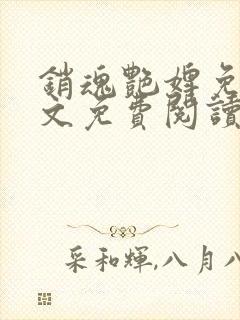 銷魂艷婢免
文免費閱讀
采和輝,八月八